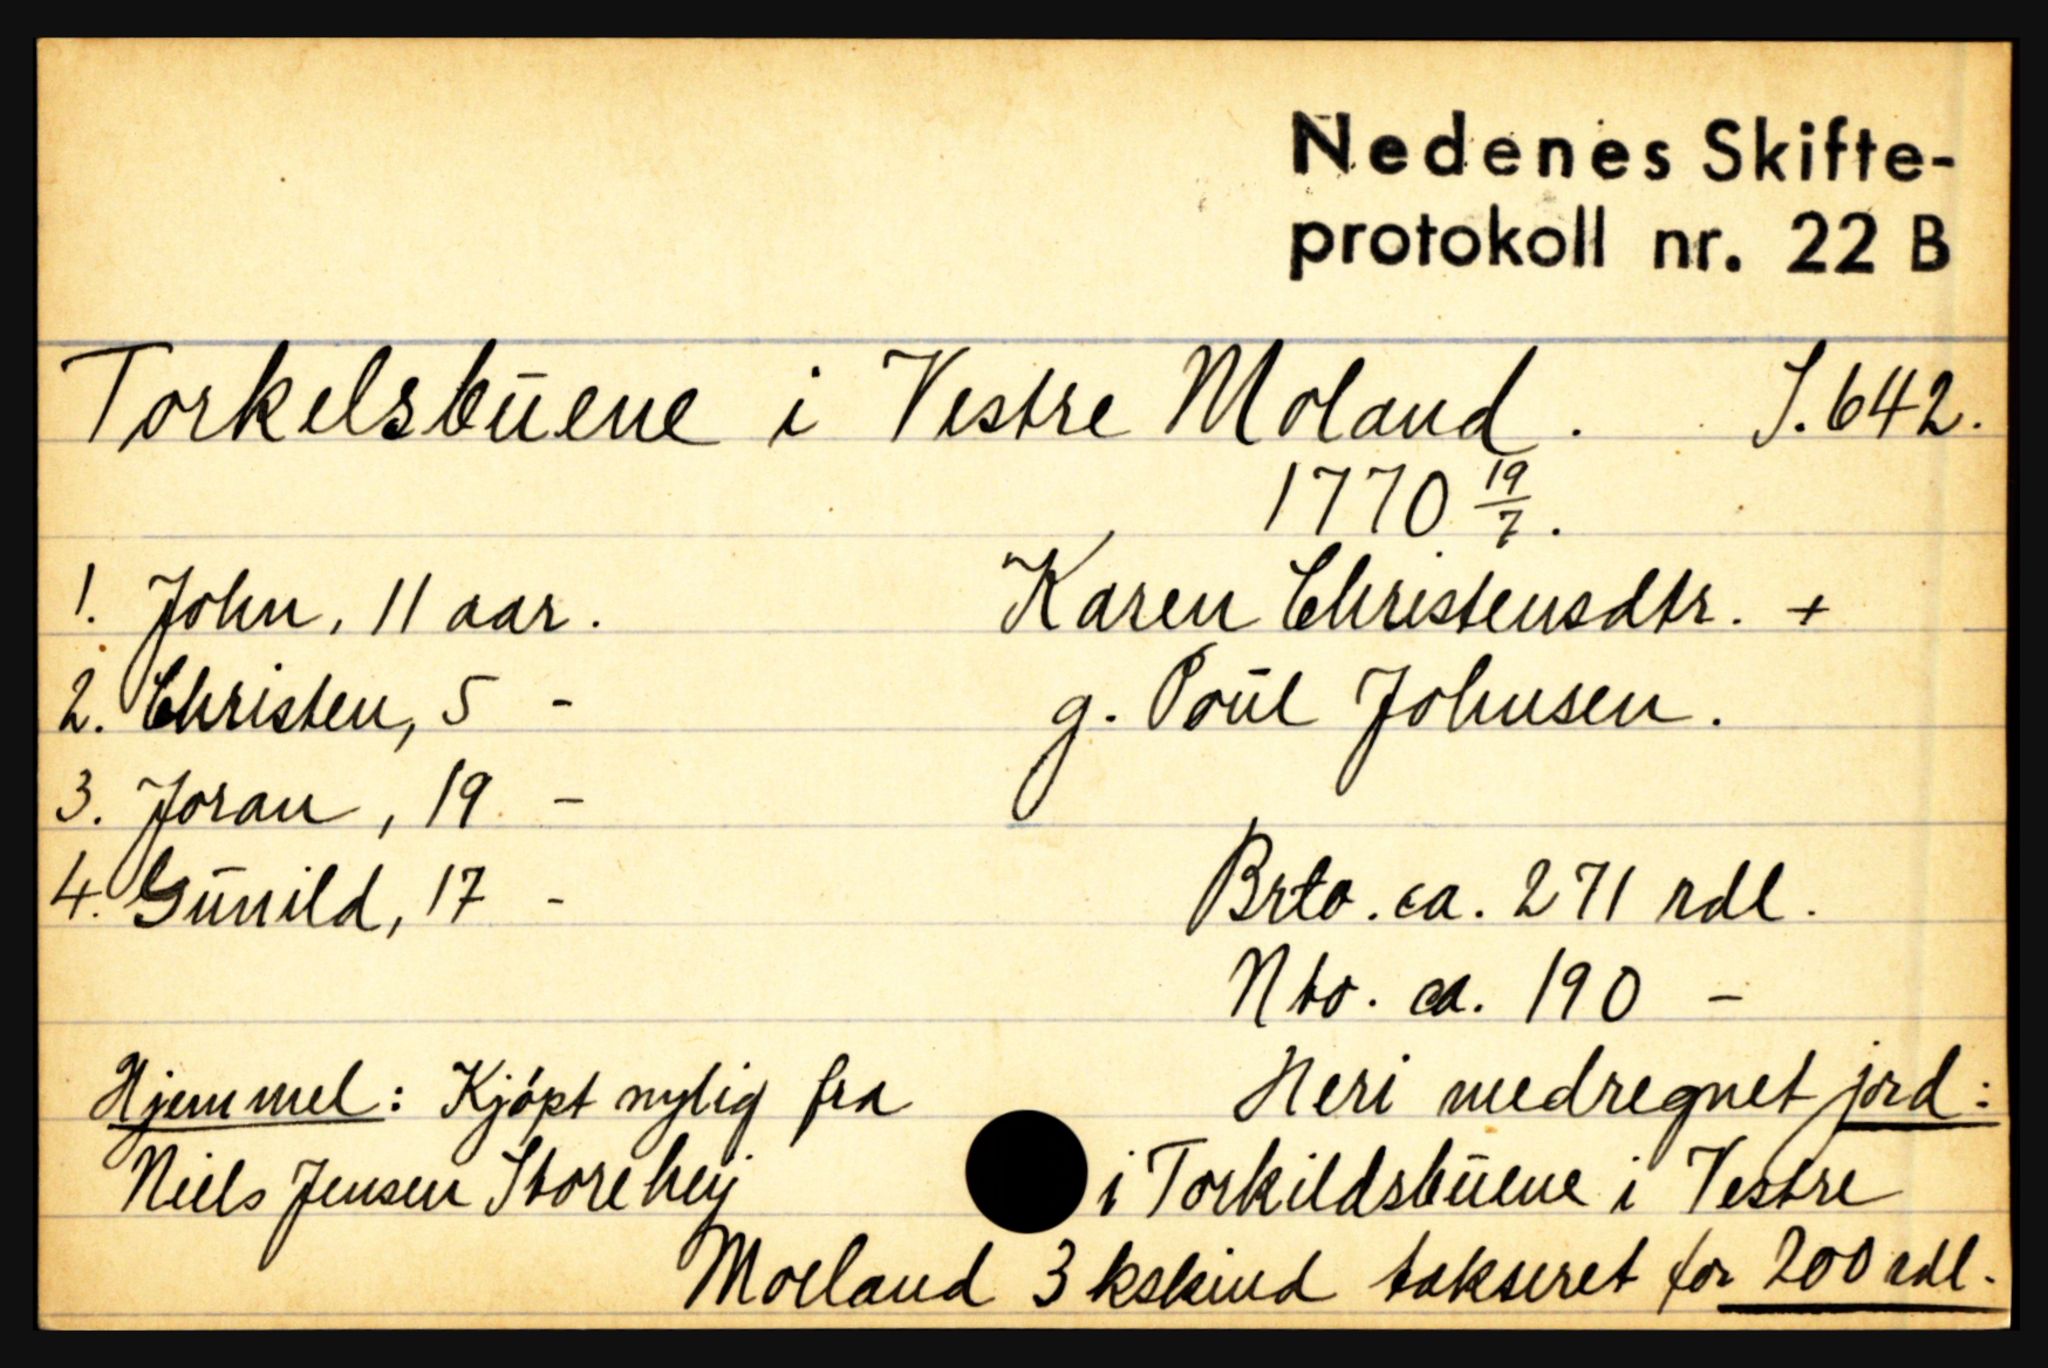 Nedenes Skifte-
protokoll nr. 22 B
Torkelsbuene i Vestre Moland. S. 642.
1770 19/7.
1. John, 11 aar.
Karen Christensdtr. +
2. Christen, 5 -
g. Poul Johnsen.
3. Joran, 19 -
4. Gunild, 17 -
Brto. ca. 271 rdl.
Nto. ca. 190 -
Hjemmel: Kjöpt nylig fra
Niels Jensen Storeheij
Heri medregnet jord:
i Torkildsbuene i Vestre
Moeland 3 kskind takseret for 200 rdl.